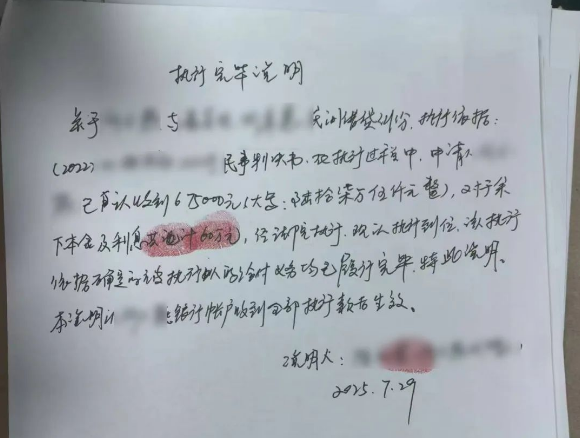 执行完毕说明
关于 与 民间借贷纠纷，执行依据：
(2022) 民事判决书，现执行过程中，申请人
已确认收到675000元(大写：陆拾柒万伍仟元整)，对于余
下本金及利息共计60万元，经法院执行，现认执行到位，该执行
依据确定的被执行人的给付义务均已履行完毕，特此说明。
本说明 银行帐户收到全部执行款后生效。
说明人：
2025.7.29